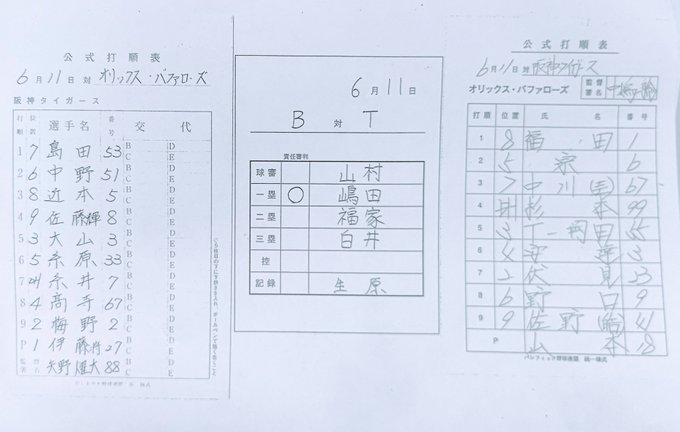 公式打順表
6月11日対オリックス・バファローズ
阪神タイガース
打順 位置 選手名 番号 交代
1 7 島田 53 B C D E
2 6 中野 51 B C D E
3 8 近本 5 B C D E
4 9 佐藤輝 8 B C D E
5 3 大山 3 B C D E
6 5 糸原 33 B C D E
7 DH 糸井 7 B C D E
8 4 高寺 67 B C D E
9 2 梅野 2 B C D E
P 1 伊藤将 27 B C D E
監督署名 矢野燿大 88 B C D E
6月11日
B対T
責任審判
球審 山村
一塁 ○ 嶋田
二塁 福家
三塁 白井
控
記録 生原
公式打順表
6月11日対阪神タイガース
オリックス・バファローズ 監督署名
打順 位置 氏名 番号
1 8 福田 1
2 5 宗 6
3 7 中川(圭) 67
4 DH 杉本 99
5 3 T-岡田 55
6 4 安達 3
7 2 伏見 23
8 6 野口 9
9 9 佐野(皓) 41
P 山本 18
パシフィック野球連盟 統一様式